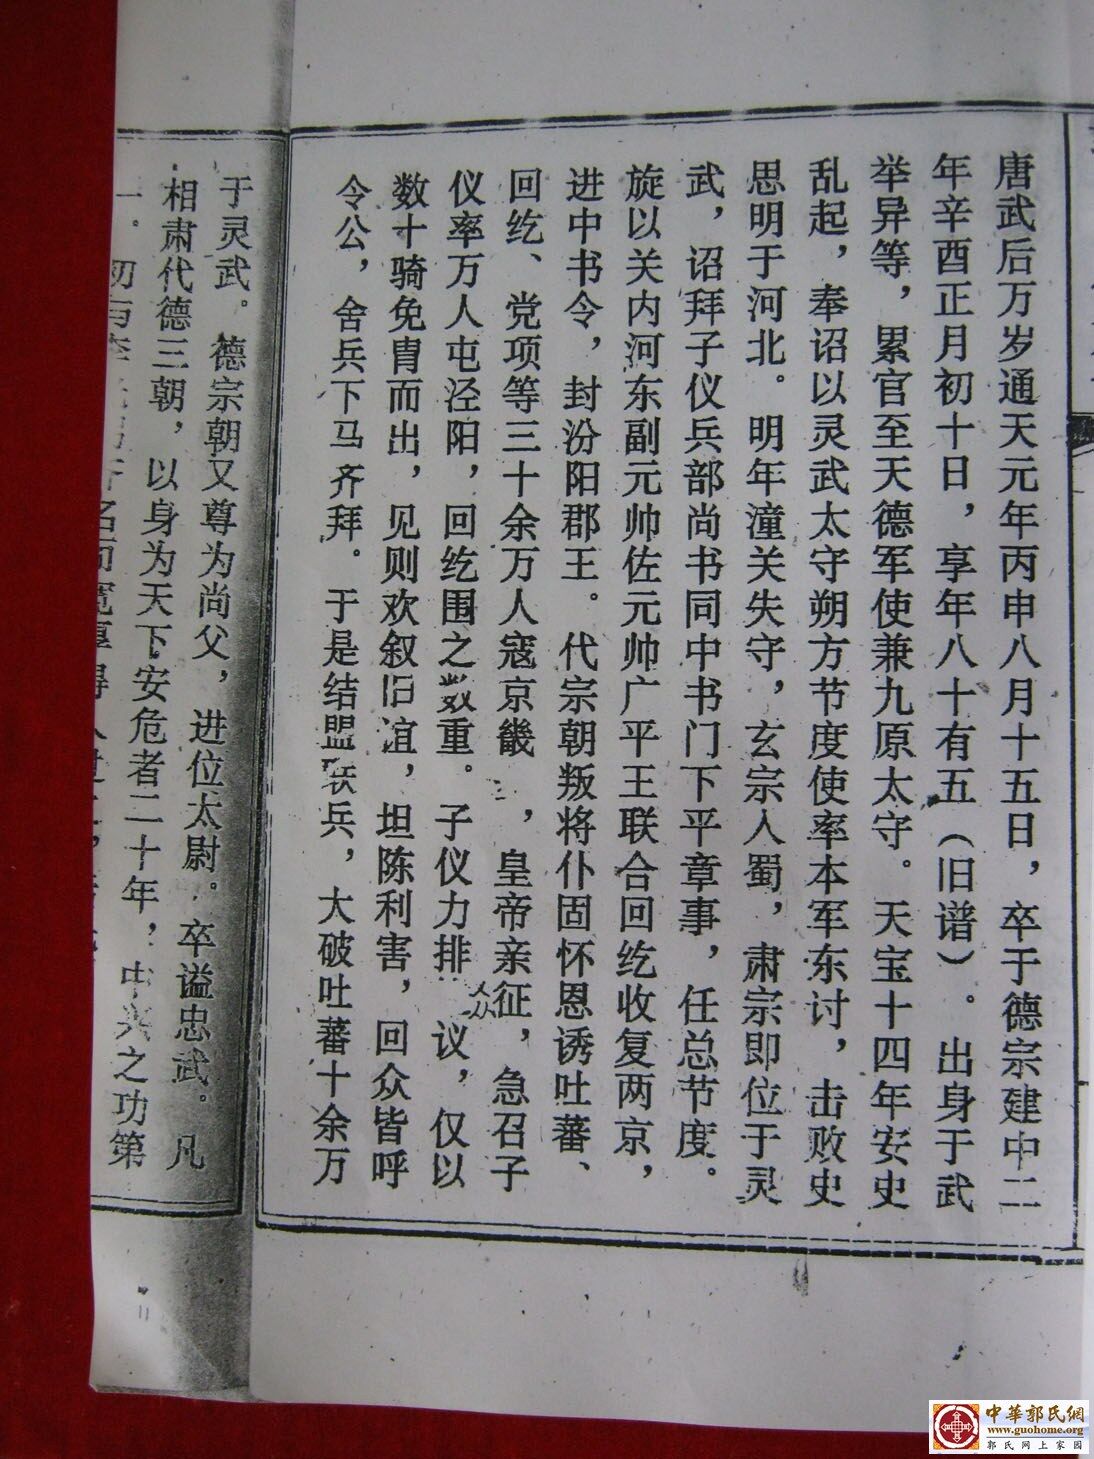 唐武后万岁通天元年丙申八月十五日，卒于德宗建中二
年辛酉正月初十日，享年八十有五（旧谱）。出身于武
举异等，累官至天德军使兼九原太守。天宝十四年安史
乱起，奉诏以灵武太守朔方节度使率本军东讨，击败史
思明于河北。明年潼关失守，玄宗入蜀，肃宗即位于灵
武，诏拜子仪兵部尚书同中书门下平章事，任总节度。
旋以关内河东副元帅佐元帅广平王联合回纥收复两京，
进中书令，封汾阳郡王。代宗朝叛将仆固怀恩诱吐蕃、
回纥、党项等三十余万人寇京畿，皇帝亲征，急召子
仪率万人屯泾阳，回纥围之数重。子仪力排众议，仅以
数十骑免胄而出，见则欢叙旧谊，坦陈利害，回众皆呼
令公，舍兵下马齐拜。于是结盟联兵，大破吐蕃十余万
于灵武。德宗朝又尊为尚父，进位太尉。卒谥忠武。凡
相肃代德三朝，以身为天下安危者二十年，中兴之功第
一。
中華郭氏網
www.guohome.org
郭氏网上家园